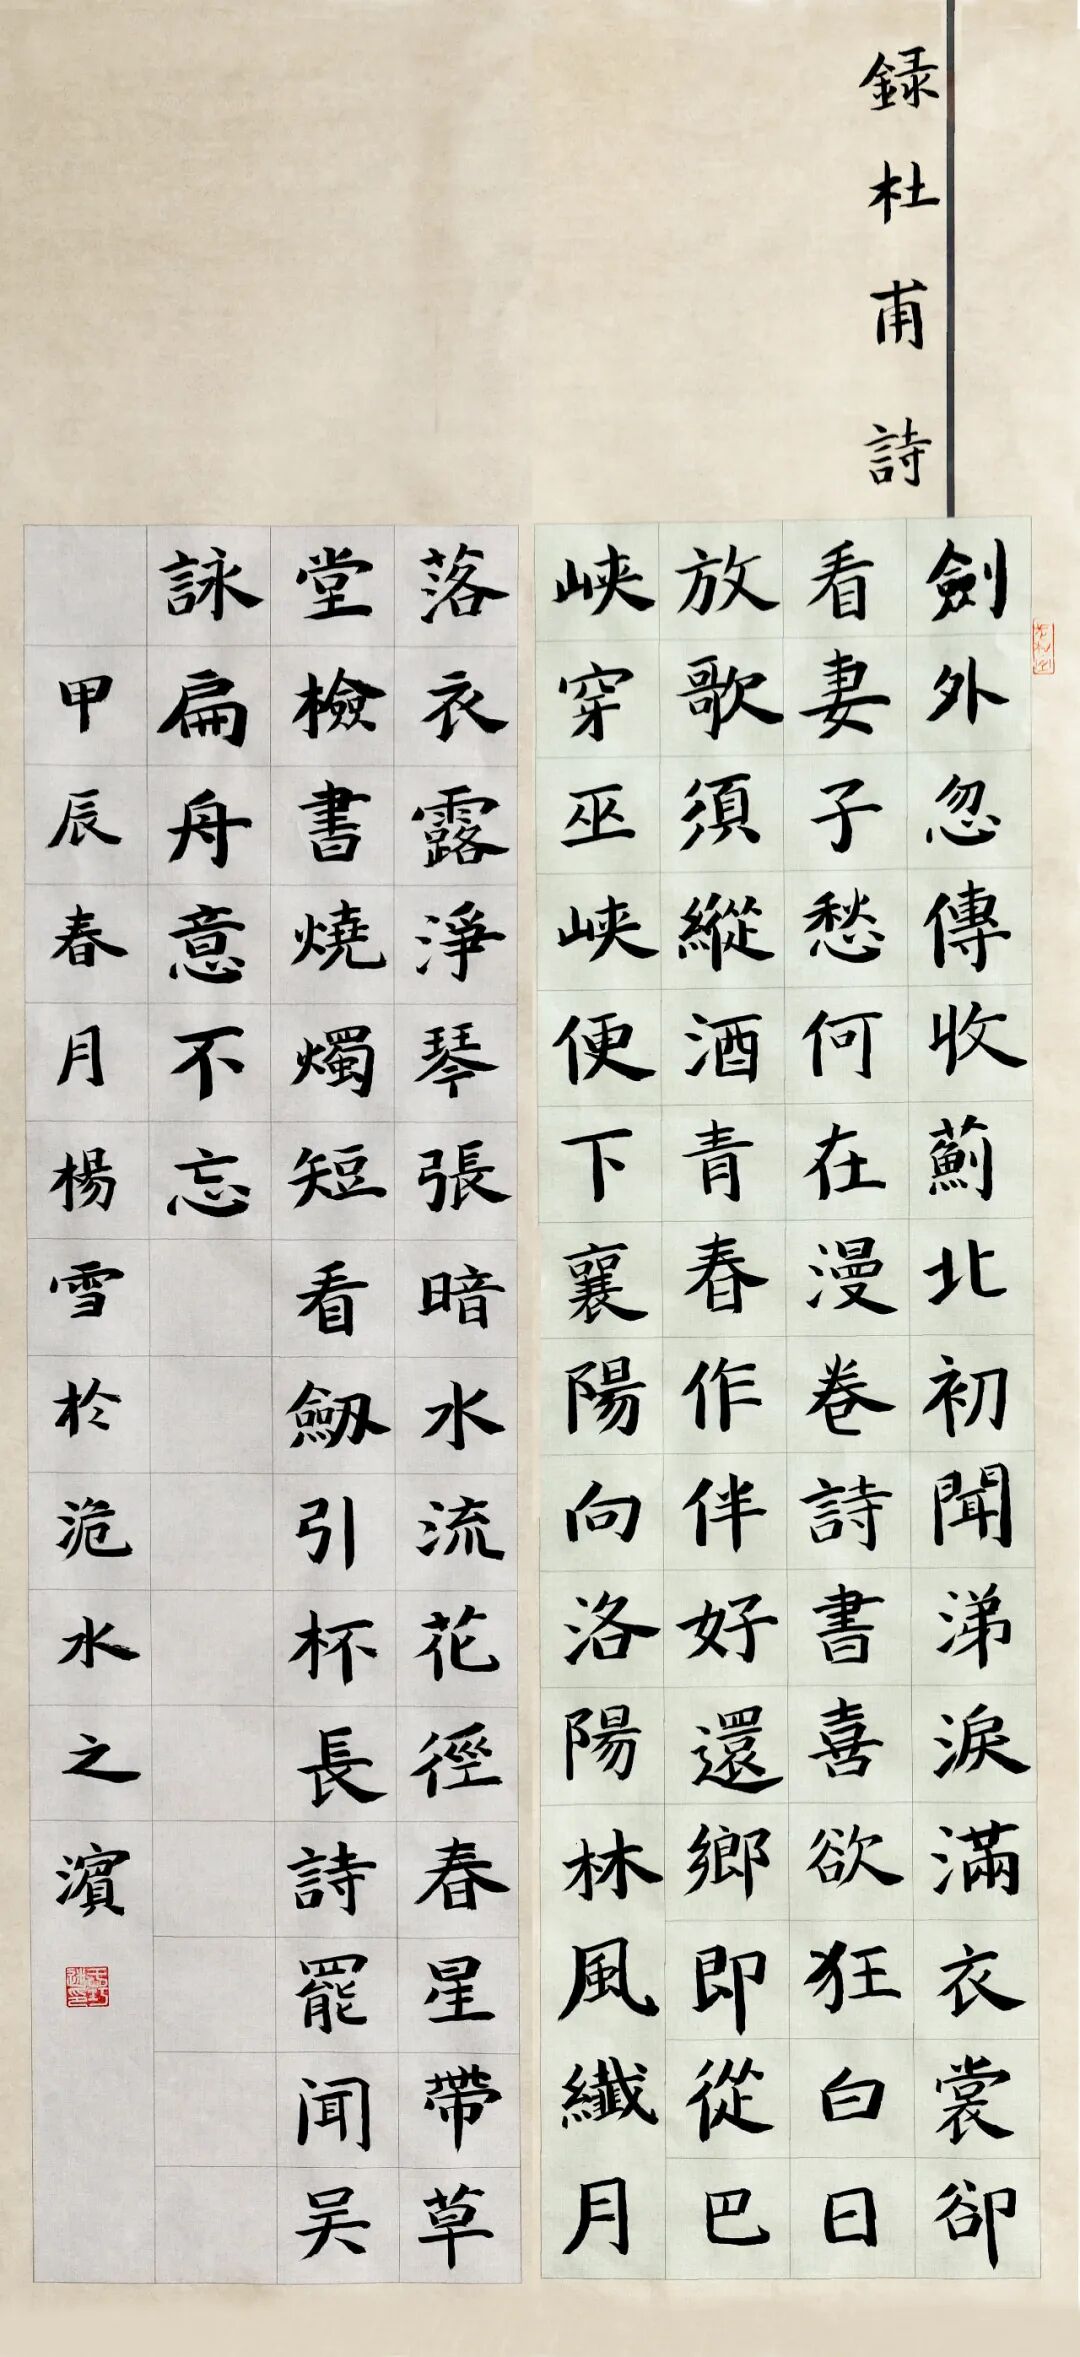 録杜甫詩
劍外忽傳收薊北初聞涕淚滿衣裳卻
看妻子愁何在漫卷詩書喜欲狂白日
放歌須縱酒青春作伴好還鄉即從巴
峽穿巫峽便下襄陽向洛陽林風纖月
落衣露淨琴張暗水流花徑春星帶草
堂檢書燒燭短看劒引杯長詩罷聞吴
詠扁舟意不忘
甲辰春月楊雪於洈水之濱